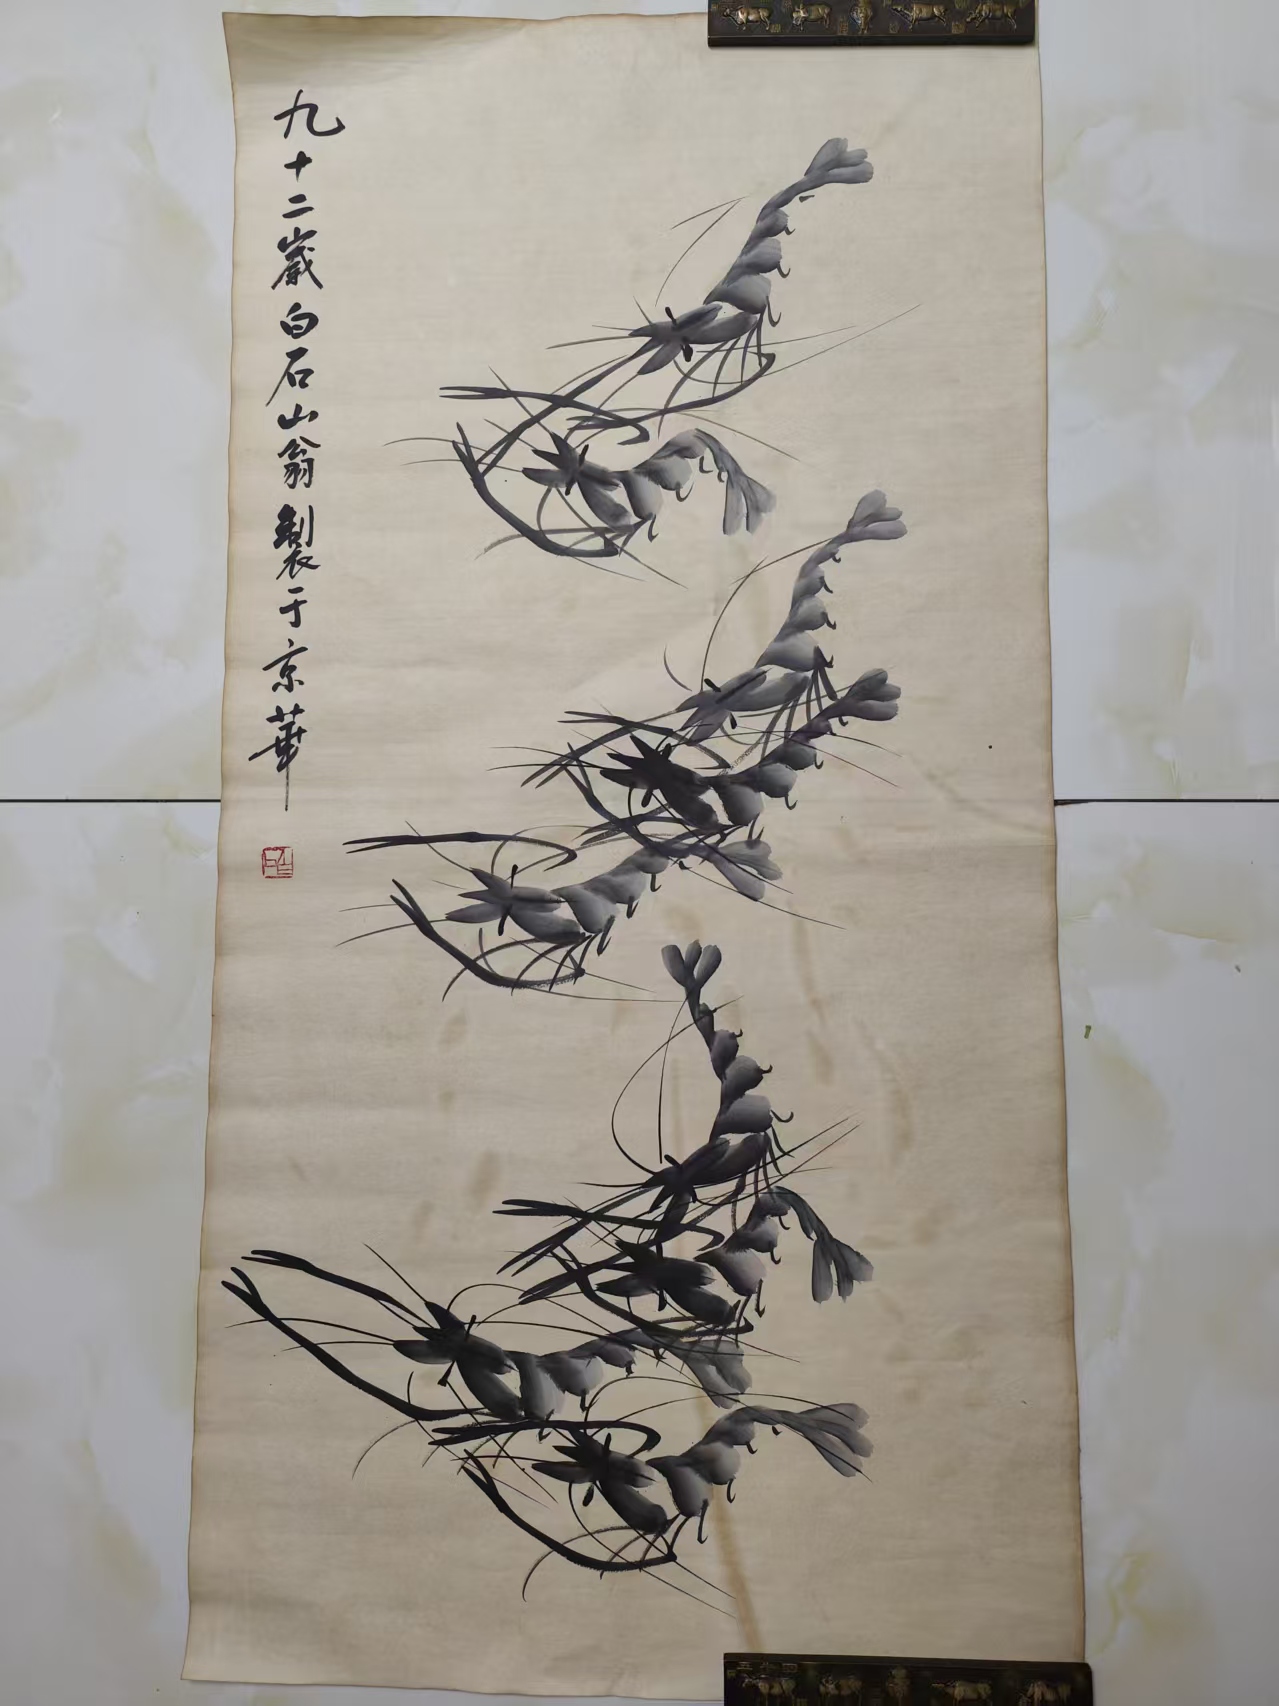 九十二歲白石山翁製于京華